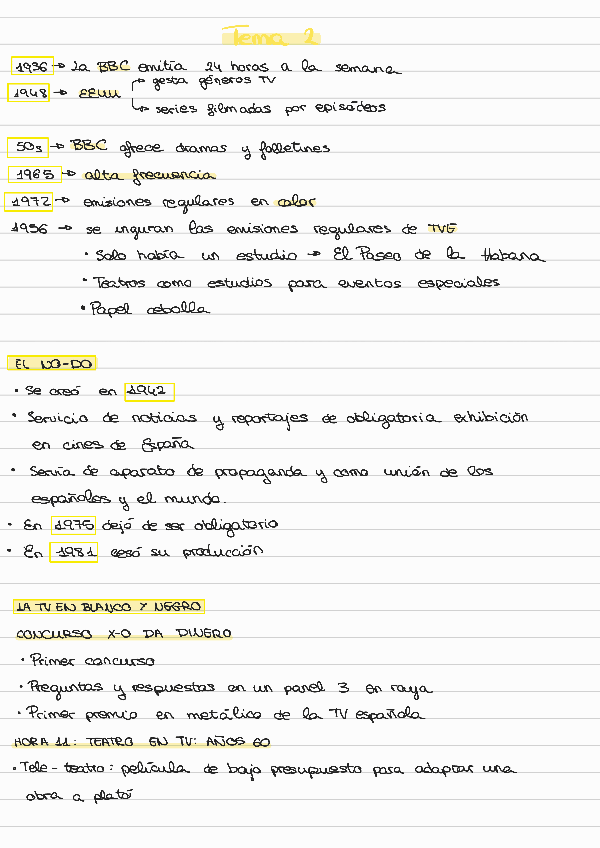 Tema 2
1936 → La BBC emitia 24 horas a la semana
1948 → EEUU → gesta géneros TV
→ series filmadas por episodeos
50s → BBC ofrece dramas y folletines
1965 → alta frecuencia
1972 → emisiones regulares en color
1956 → se inguran las emisiones regulares de TVE
· Solo había un estudio → El Paseo de la Habana
· Teatros como estudios para eventos especiales
· Papel cebolla
EL NO-DO
· Se creó en 1942
· Servicio de noticias y reportajes de obligatoria exhibición
en cines de España
· Servía de aparato de propaganda y como unión de los
españoles y el mundo.
· En 1975 dejó de ser obligatorio
· En 1981 cesó su producción
LA TV EN BLANCO Y NEGRO
CONCURSO X-O DA DINERO
· Primer concurso
· Preguntas y respuestas en un panel 3 en raya
· Primer premio en metálico de la TV española
HORA 11: TEATRO EN TV: AÑOS 60
· Tele-teatro: película de bajo presupuesto para adaptar una
obra a plató